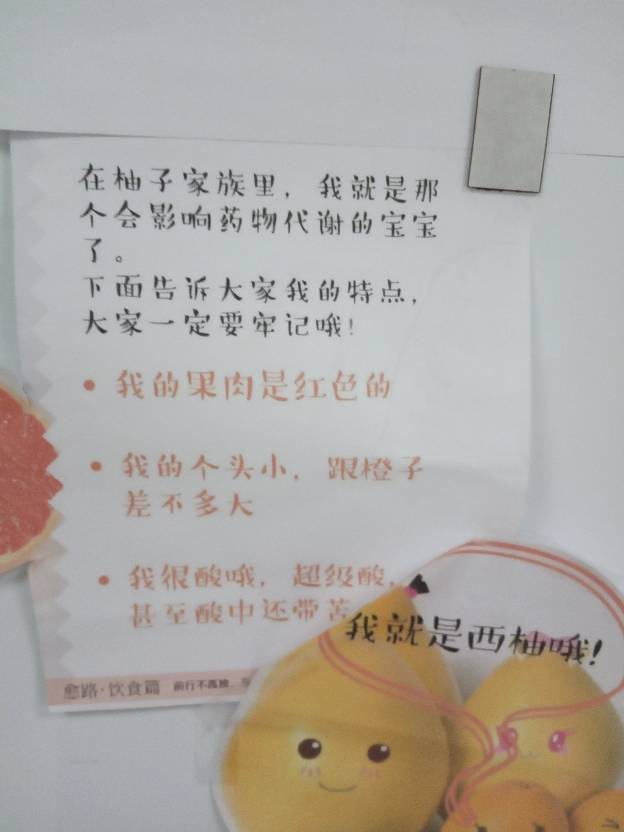 在柚子家族里，我就是那
个会影响药物代谢的宝宝
了。
下面告诉大家我的特点，
大家一定要牢记哦！
• 我的果肉是红色的
• 我的个头小，跟橙子
差不多大
• 我很酸哦，超级酸，
甚至酸中还带苦
我就是西柚哦！
愈路·饮食篇 前行不孤独